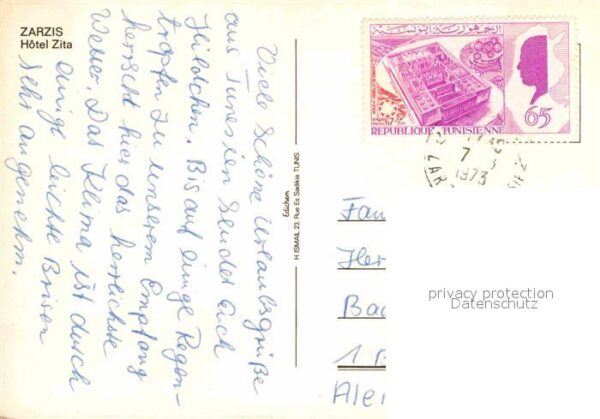 ZARZIS
Hôtel Zita
Viele schöne Urlaubsgrüße
aus Tunesien sendet Euch
Hildchen. Bis auf einige Regen-
tropfen zu unserem Empfang
herrscht hier das herrlichste
Wetter. Das Klima ist durch
einige leichte Brisen
sehr angenehm.
Edichem
H ISMAIL 23, Rue Es Sadikia TUNIS
الجمهورية التونسية
65
REPUBLIQUE TUNISIENNE
7
1973
Fam
Her
Bad
1 B
Alem
privacy protection
Datenschutz